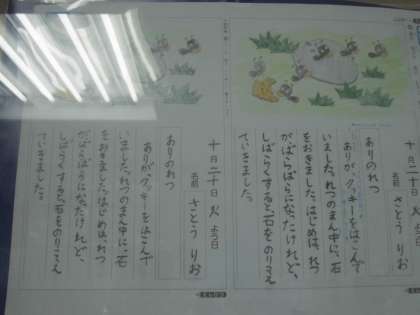 十月二十日 火よう日
名前 さとう りお
ありのれつ
ありが、クッキーをはこんで
いました。れつのまん中に、石
をおきました。はじめは、れつ
がばらばらになったけれど、
しばらくすると、石をのりこえ
ていきました。
十月二十日 火よう日
名前 さとう りお
ありのれつ
ありが、クッキーをはこんで
いました。れつのまん中に、石
をおきました。はじめは、れつ
がばらばらになったけれど、
しばらくすると、石をのりこえ
ていきました。